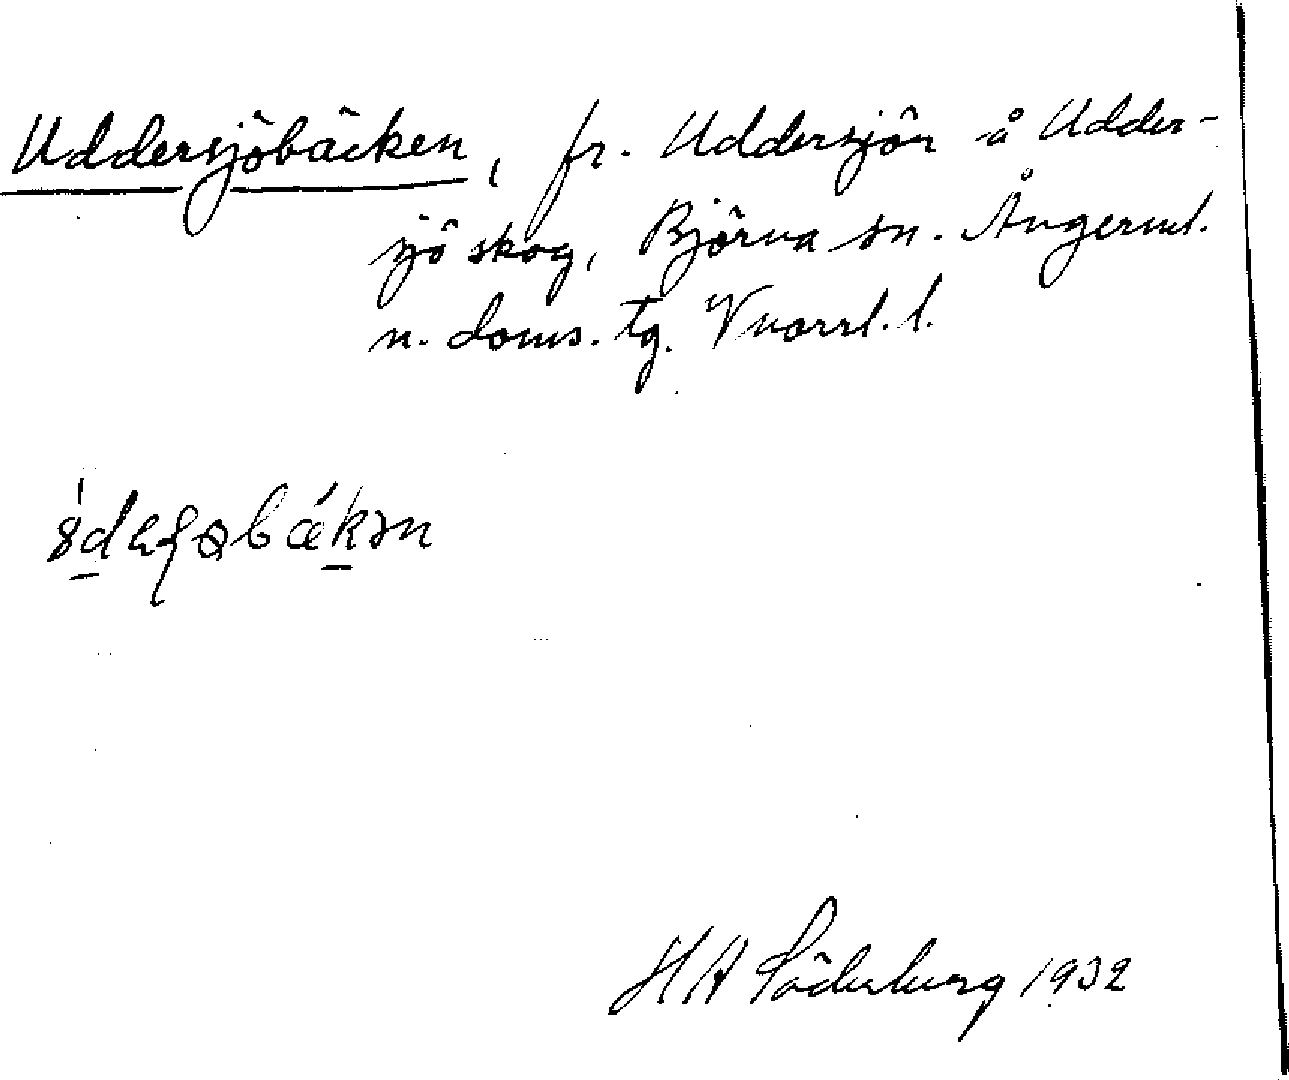 Uddersjöbäcken, fr. Uddersjön å Udder-
sjö skog, Björna sn. Ångerml.
n. doms. tg. Vnorrl. l.
H A Söderberg 1932